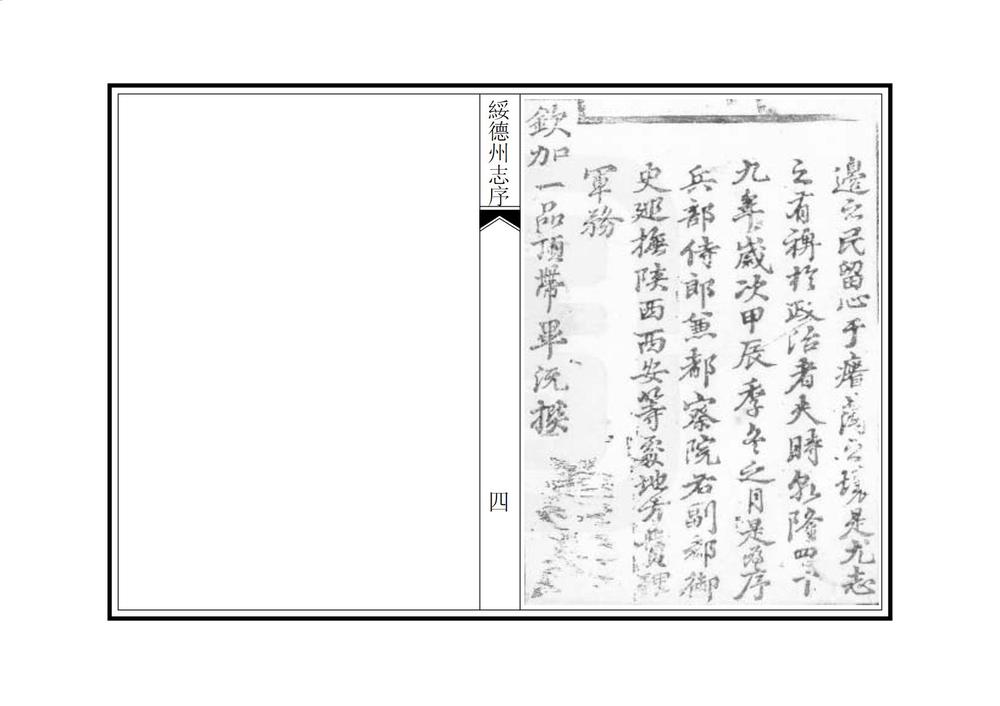 邊之民留心于瘠之壤是尤志
之有裨於政治者夫時乾隆四十
九年歲次甲辰季冬之月是為序
兵部侍郎兼都察院右副都御
史廵撫陕西西安等處地方贊理
軍務
欽加一品頂帶畢沅撰
綏德州志序
四